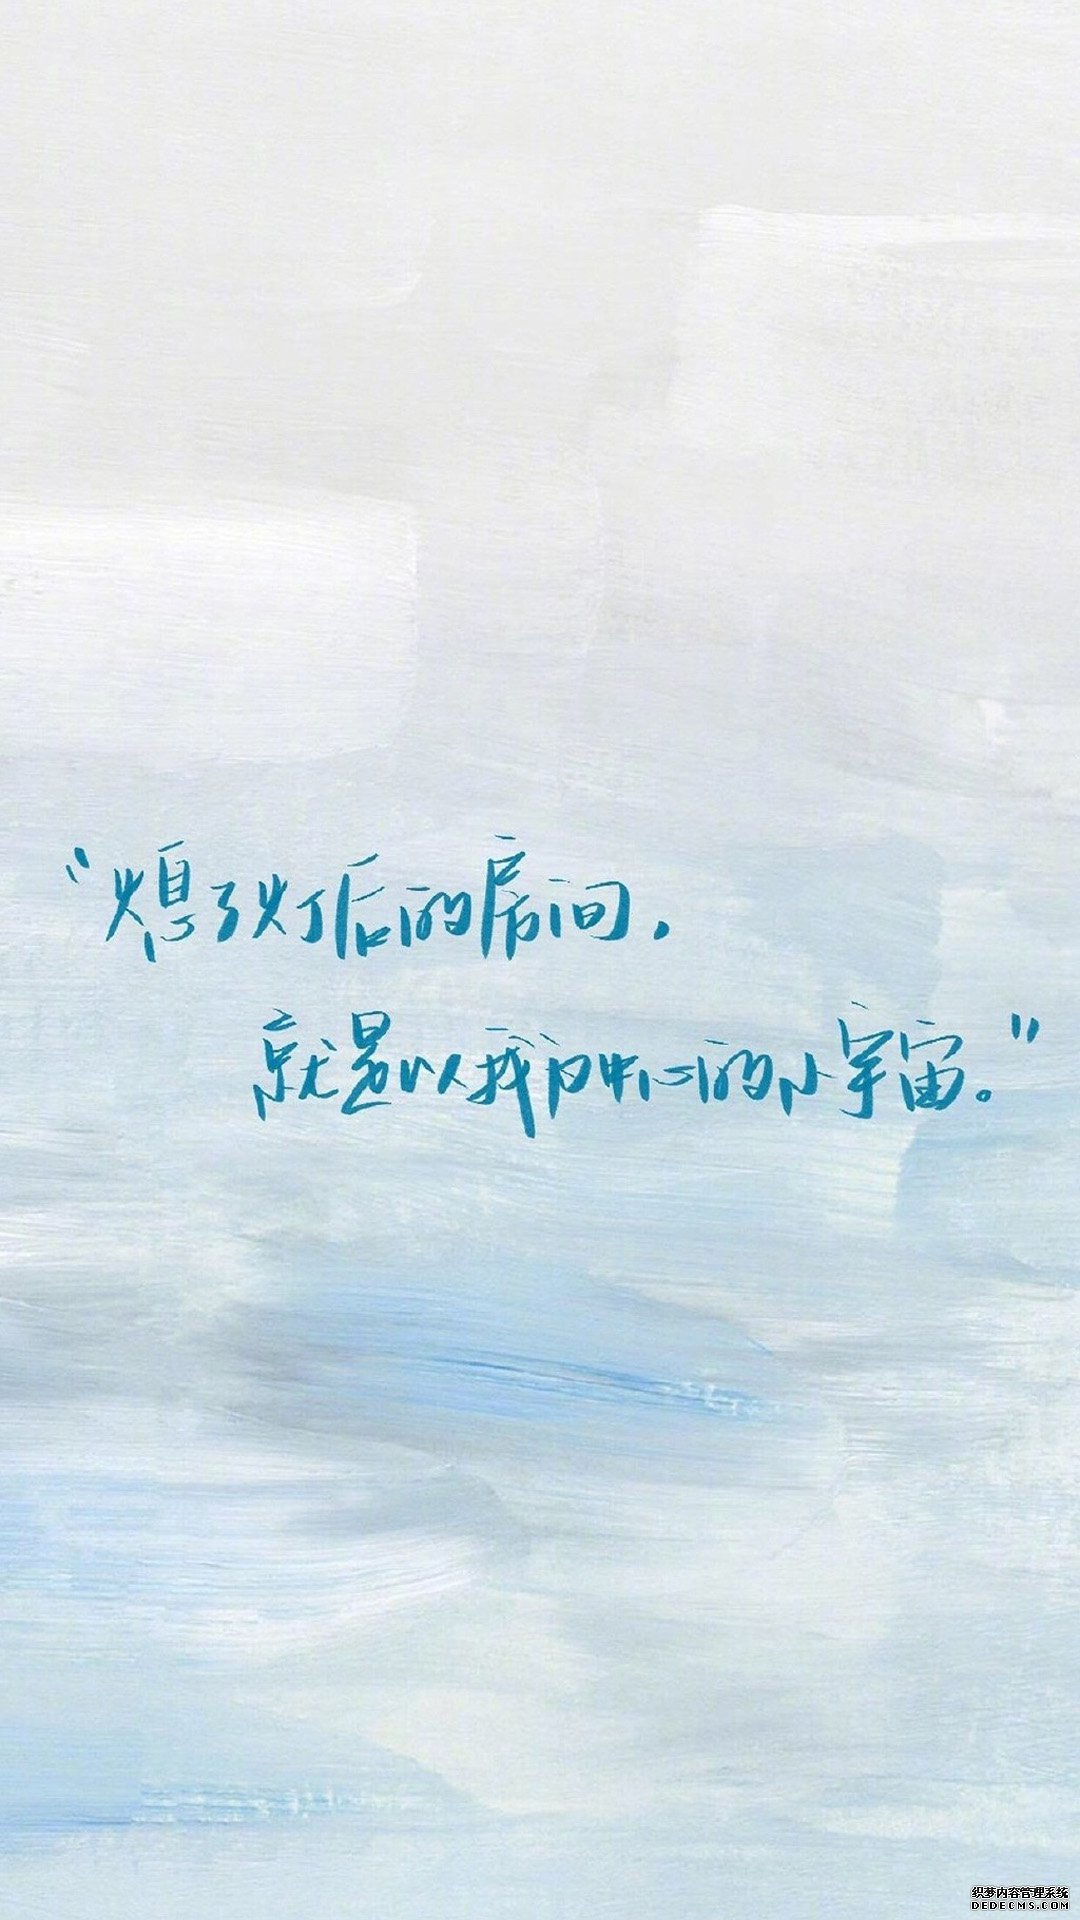 “熄了灯后的房间，
就是以我为中心的小宇宙。”
织梦内容管理系统
DEDECMS.COM